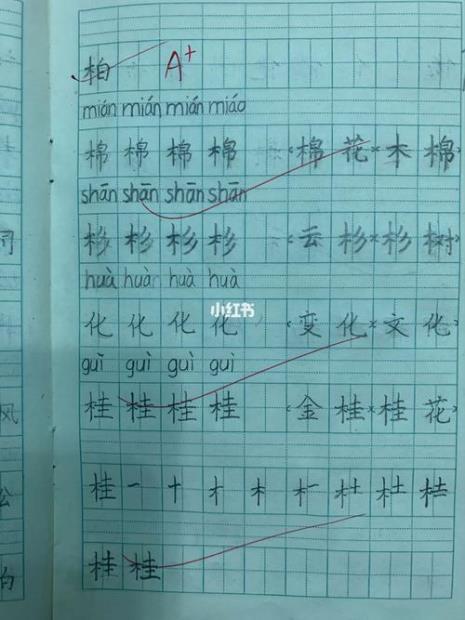 柏 A+
mián mián mián miáo
棉 棉 棉 棉 (棉花×木棉)
shān shān shān shān
杉 杉 杉 杉 (云杉×杉树)
huà huà huà huà
化 化 化 化 (变化×文化)
小红书
guì guì guì guì
桂 桂 桂 桂 (金桂×桂花)
桂 一 十 才 木 杧 杜 杜 桂
桂 桂
司
风
公
的